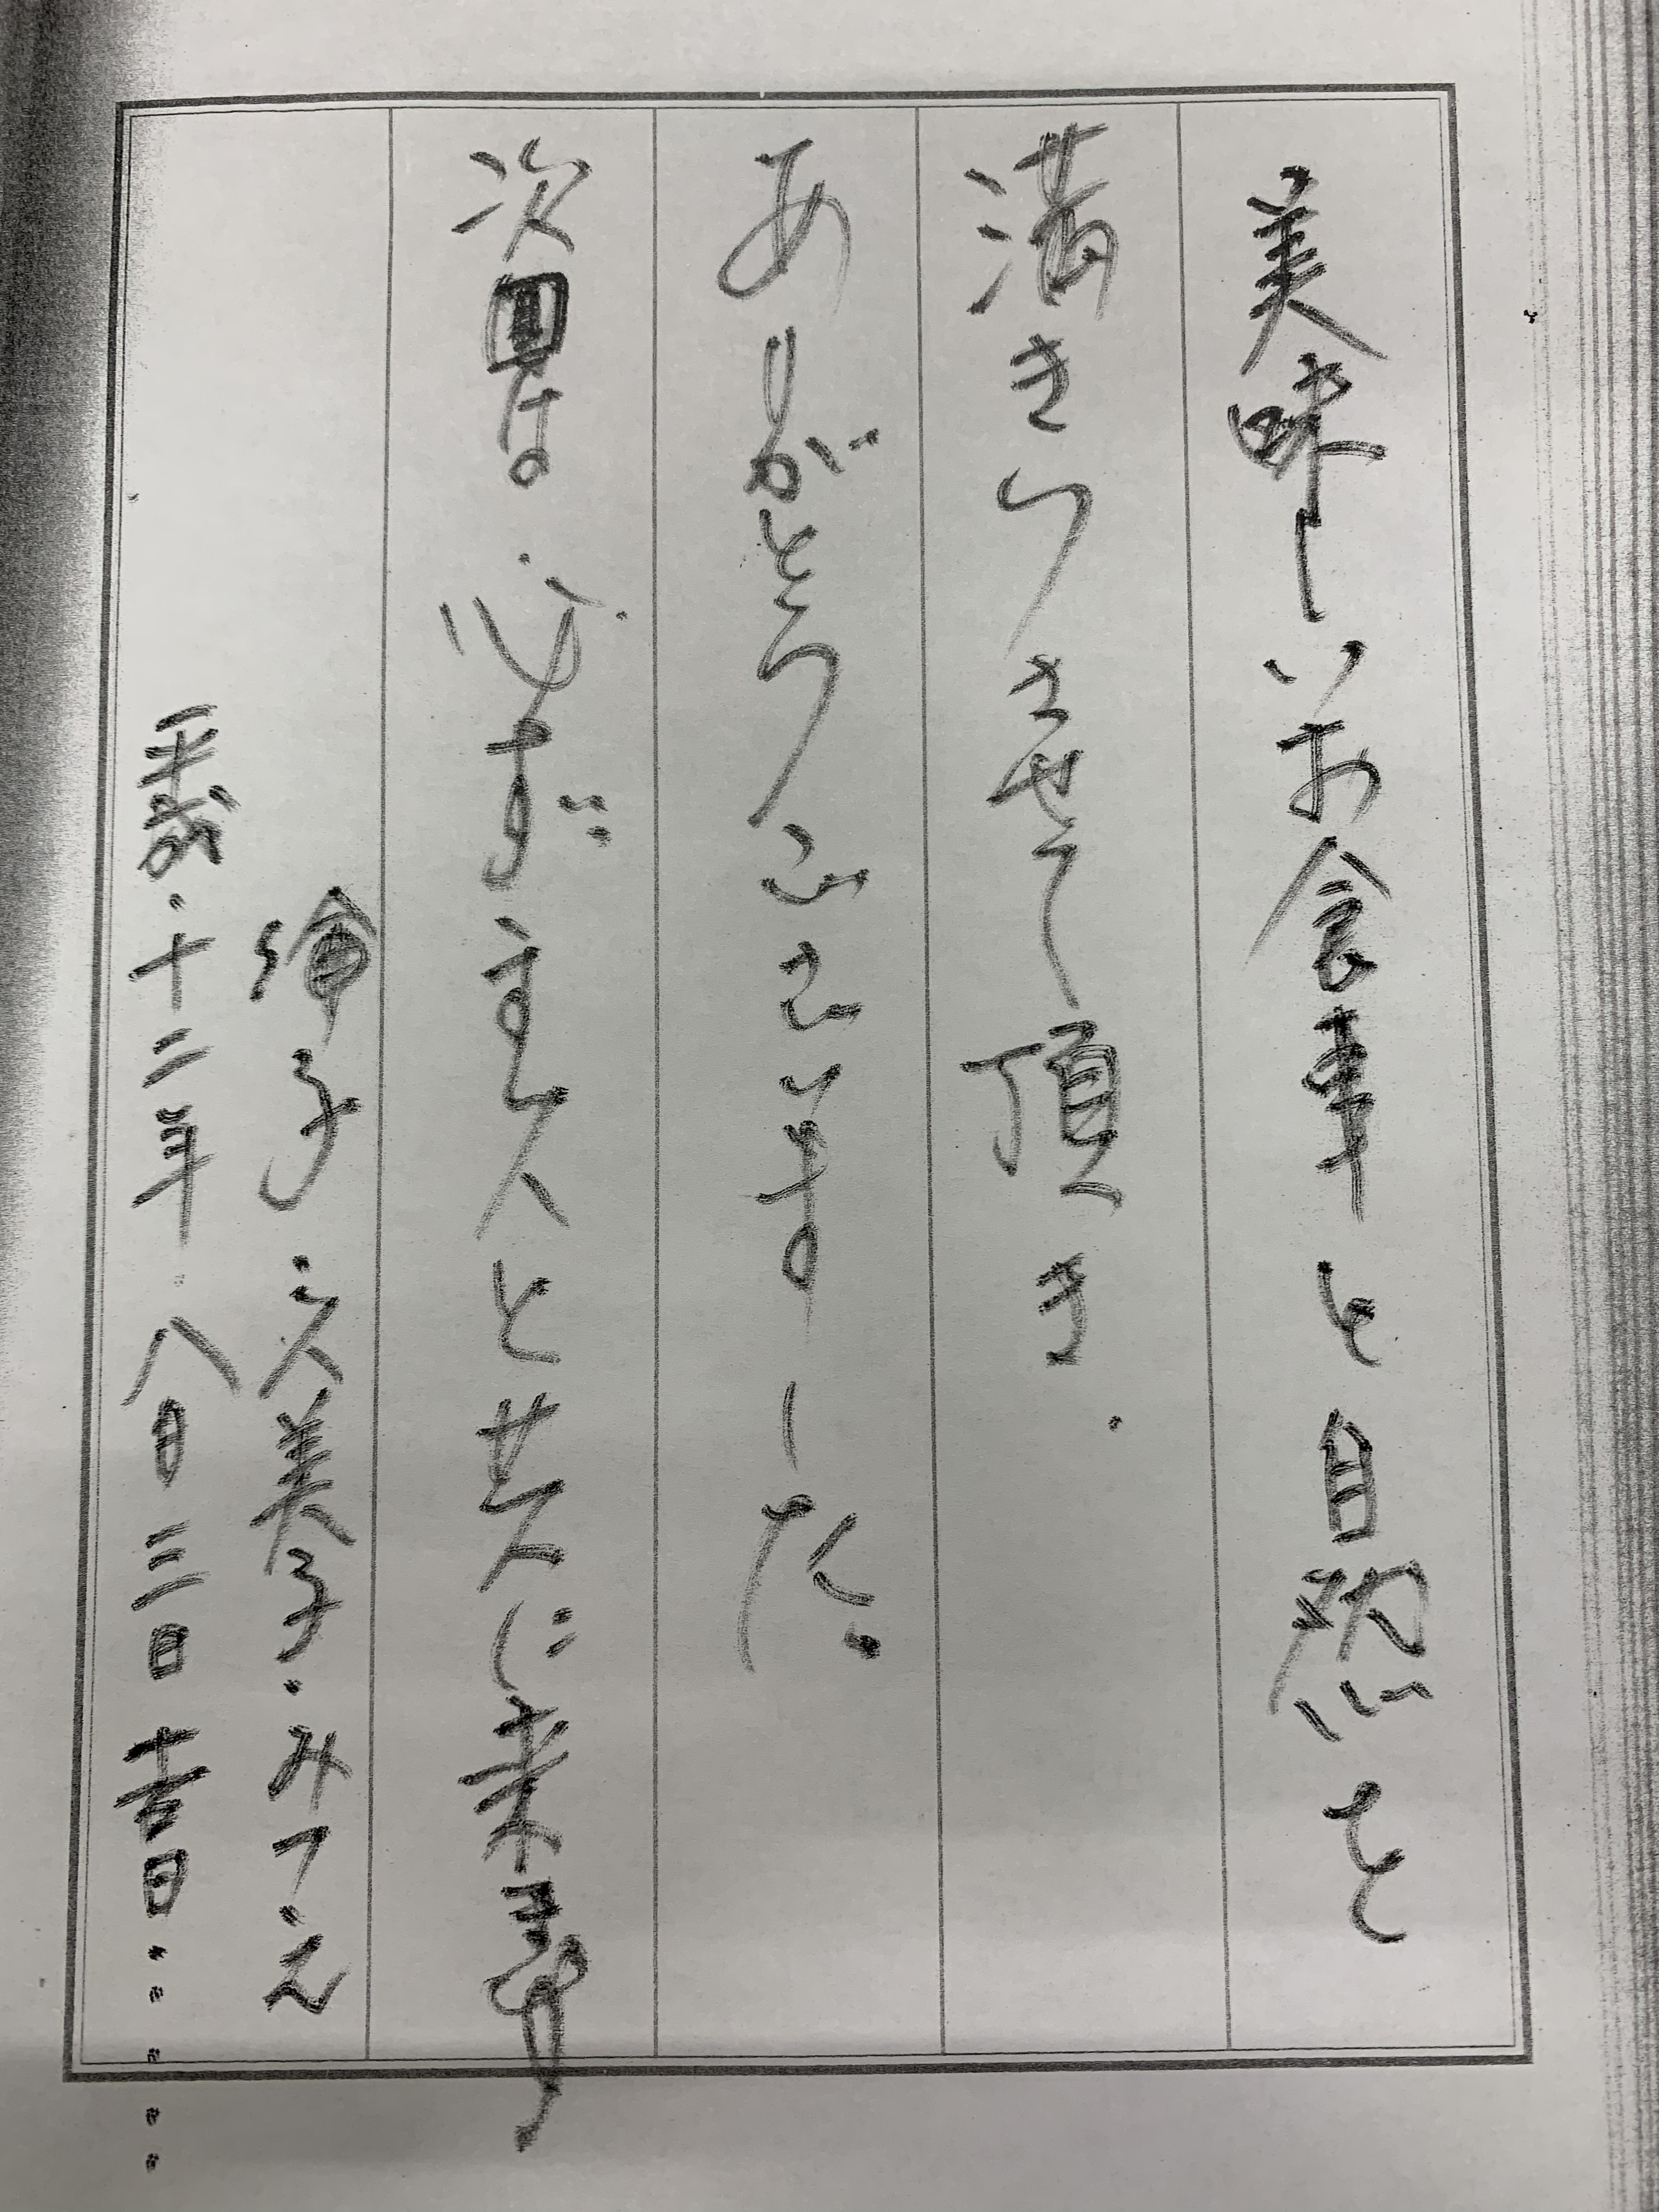 美味しいお食事と自然を
満きつさせて頂き.
ありがとうございました。
次回は必ず主人と共に来ます
子・久美子・みつえ
平成・十二年八月三日吉日・・・・・